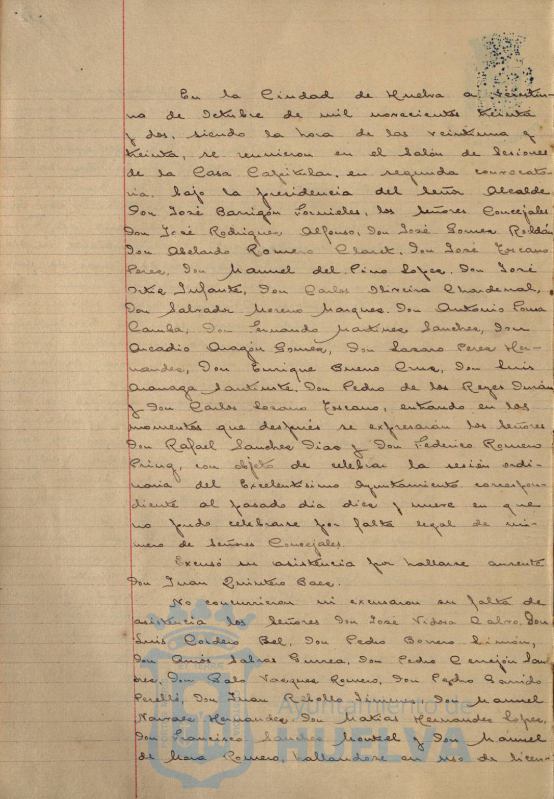 En la Ciudad de Huelva a veintiu-
no de Octubre de mil novecientos treinta
y dos, siendo la hora de las veintiuna y
treinta, se reunieron en el Salón de Sesiones
de la Casa Capitular, en segunda convocato-
ria, bajo la presidencia del Señor Alcalde
Don José Barrigón Fornieles, los Señores Concejales
Don José Rodriguez Alfonso, Don José Gomez Roldán
Don Abelardo Romero Claret, Don José Toscano
Perez, Don Manuel del Pino Lopez, Don José
Ortiz Infante, Don Carlos Oliveira Chardenal,
Don Salvador Moreno Marquez, Don Antonio Pousa
Camba, Don Fernando Martinez Sanchez, Don
Arcadio Aragón Gomez, Don Lazaro Perez Her-
nandez, Don Enrique Bueno Cruz, Don Luis
Don Pedro de los Reyes Durán
y Don Carlos Lozano Toscano, entrando en los
momentos que después se expresarán los Señores
Don Rafael Sanchez Diaz y Don Federico Romero
con objeto de celebrar la sesión ordi-
naria del Excelentísimo Ayuntamiento correspon-
diente al pasado dia diez y nueve en que
no pudo celebrarse por falta legal de nú-
mero de Señores Concejales.
Excusó su asistencia por hallarse ausente
Don Juan Quintero Baez.
No concurrieron ni excusaron su falta de
asistencia los Señores Don José Calvo, Don
Luis Cordero Bel, Don Pedro Borrero Limón,
Don Amós Sabras Gurrea, Don Pedro Cerrejón San-
chez, Don Galo Vazquez Romero, Don Pedro Garrido
Perelló, Don Juan Rebollo Jimenez, Don Manuel
Narvaez Hernandez, Don Matias Hernandez Lopez,
Don Francisco Sanchez Montiel y Don Manuel
de Mora Romero, hallandose en uso de licen-
Ayuntamiento de
HUELVA